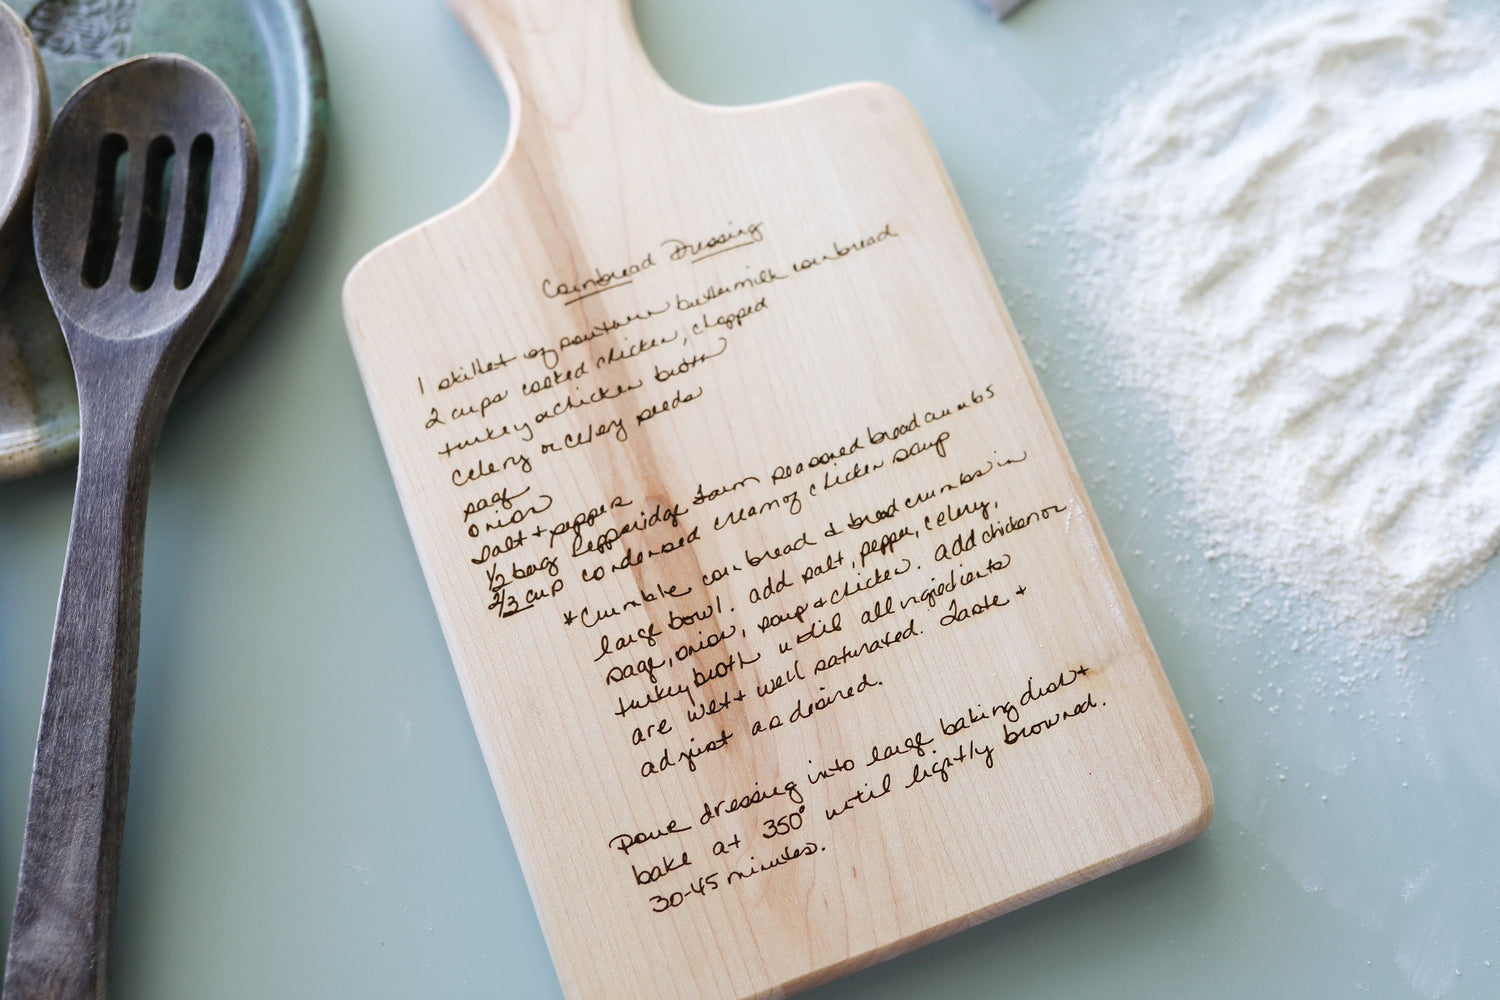 Cornbread Dressing
1 skillet of southern buttermilk cornbread
2 cups cooked chicken, chopped
turkey or chicken broth
celery or celery seeds
sage
onion
salt + pepper
1/2 bag Pepperidge Farm seasoned bread crumbs
2/3 cup condensed cream of chicken soup
*Crumble cornbread & bread crumbs in
large bowl. add salt, pepper, celery,
sage, onion, soup + chicken. add chicken or
turkey broth until all ingredients
are wet + well saturated. Taste +
adjust as desired.
Pour dressing into large baking dish +
bake at 350° until lightly browned.
30-45 minutes.